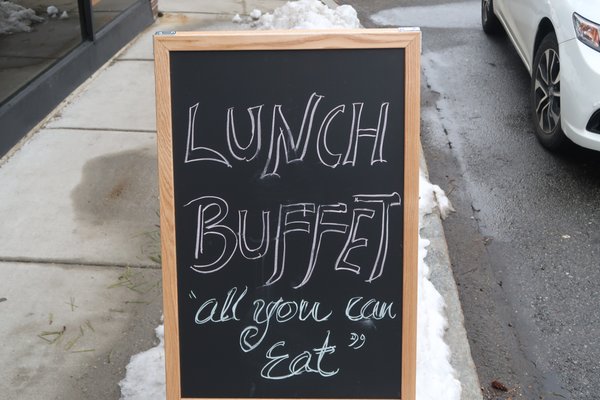 LUNCH
BUFFET
"all you can
Eat"